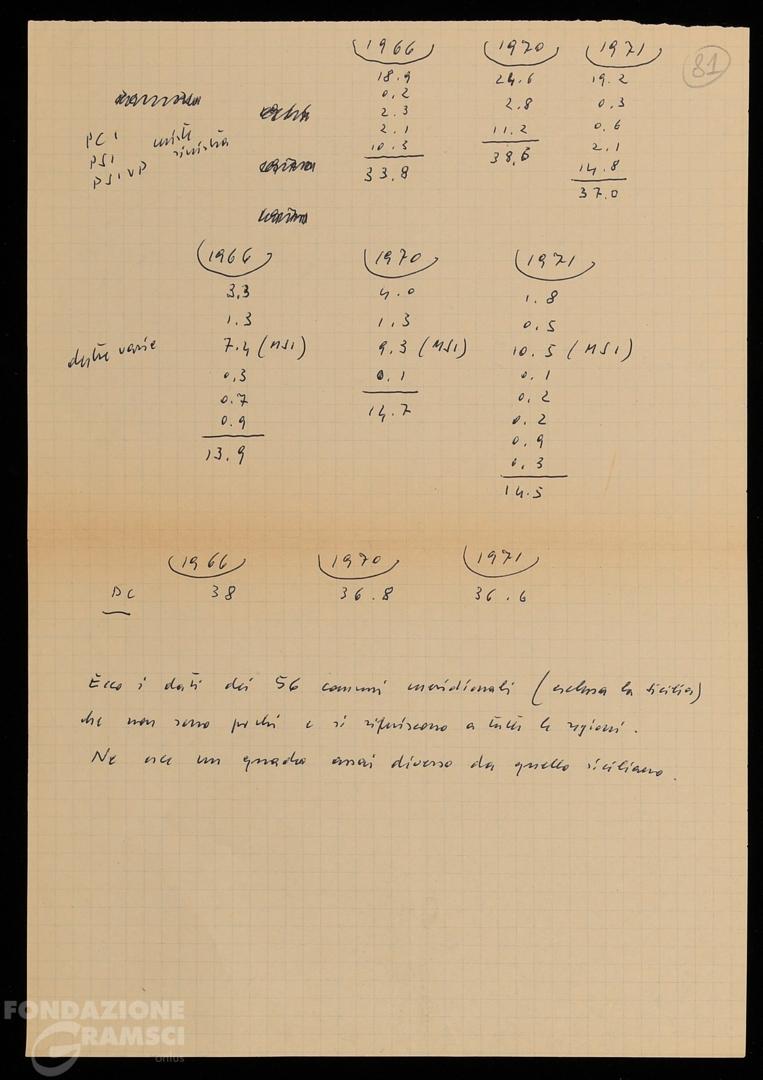 1966 1970 1971 81
18.9 24.6 19.2
0.2 2.8 0.3
2.3 11.2 0.6
2.1 38.6 2.1
10.3 14.8
33.8 37.0
PCI miste
PSI sinistra
PSIUP
1966 1970 1971
3.3 4.0 1.8
1.3 1.3 0.5
destre varie 7.4 (MSI) 9.3 (MSI) 10.5 (MSI)
0.3 0.1 0.1
0.7 14.7 0.2
0.9 0.2
13.9 0.9
0.3
14.5
1966 1970 1971
DC 38 36.8 36.6
Ecco i dati dei 56 comuni meridionali (esclusa la Sicilia)
che non sono pochi e si riferiscono a tutte le regioni.
Ne esce un quadro assai diverso da quello siciliano.
FONDAZIONE
GRAMSCI
onlus